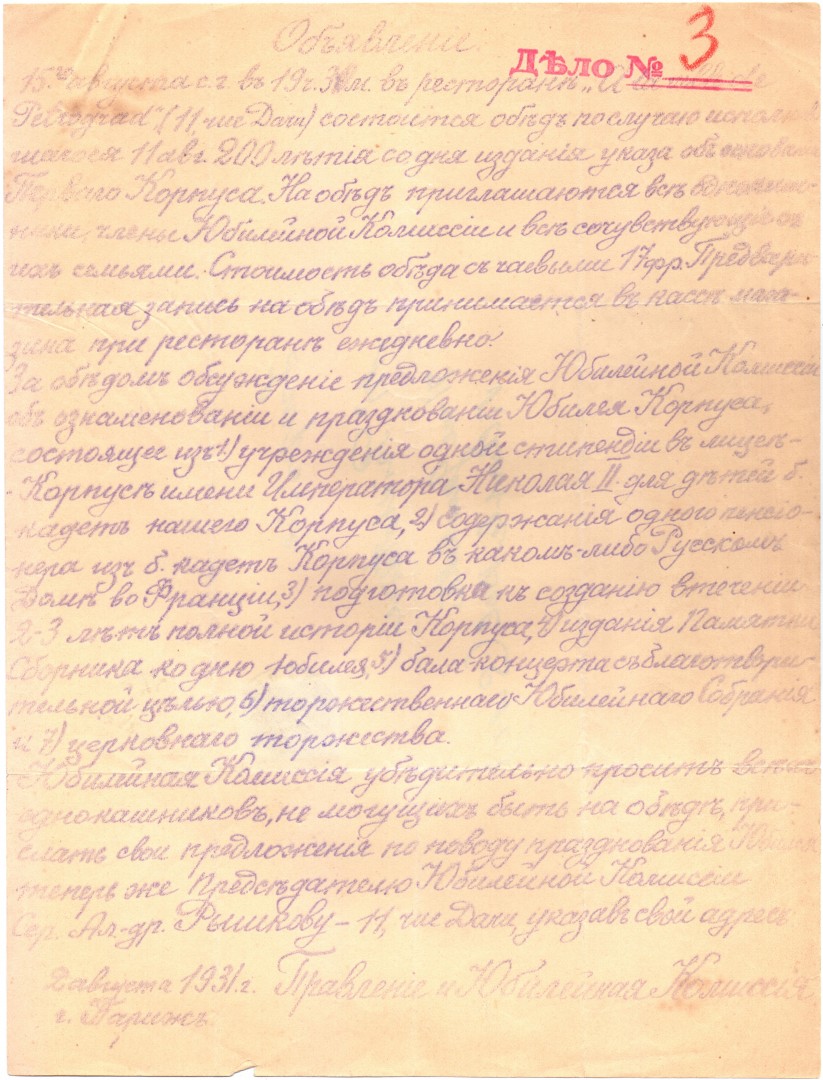 Объявленіе.
Дѣло № 3
15го августа с.г. въ 19ч. 30м. въ ресторанѣ
Petrograd" (11, rue Daru) состоится обѣдъ по случаю исполнив
шагося 11 авг. 200 лѣтія со дня изданія указа объ основаніи
Перваго Корпуса. На обѣдъ приглашаются всѣ однокаш-
ники, члены Юбилейной Комиссіи и всѣ сочувствующіе съ
ихъ семьями. Стоимость обѣда съ чаевыми 17 фр. Предвари-
тельная запись на обѣдъ принимается въ кассѣ мага-
зина при ресторанѣ ежедневно.
За обѣдомъ обсужденіе предложенія Юбилейной Комиссіи
объ ознаменованіи и празднованіи Юбилея Корпуса,
состоящее изъ 1) учрежденія одной стипендіи въ лицеѣ-
Корпусѣ имени Императора Николая II для дѣтей б.
кадетъ нашего Корпуса, 2) содержанія одного пенсіо-
нера изъ б. кадетъ Корпуса въ какомъ-либо Русскомъ
Домѣ во Франціи, 3) подготовка къ созданію втеченіи
2-3 лѣтъ полной исторіи Корпуса, 4) изданія Памятн.
Сборника ко дню Юбилея, 5) бала-концерта съ благотвори-
тельной цѣлью, 6) торжественнаго Юбилейнаго Собранія
и 7) церковнаго торжества.
Юбилейная Комиссія убѣдительно проситъ всѣхъ
однокашниковъ, не могущихъ быть на обѣдѣ, при-
слать свои предложенія по поводу празднованія Юбилея
теперь же Предсѣдателю Юбилейной Комиссіи
Сер. Ал-др. Рышкову - 11, rue Daru, указавъ свой адресъ
2 августа 1931 г. Правленіе и Юбилейная Комиссія.
г. Парижъ.